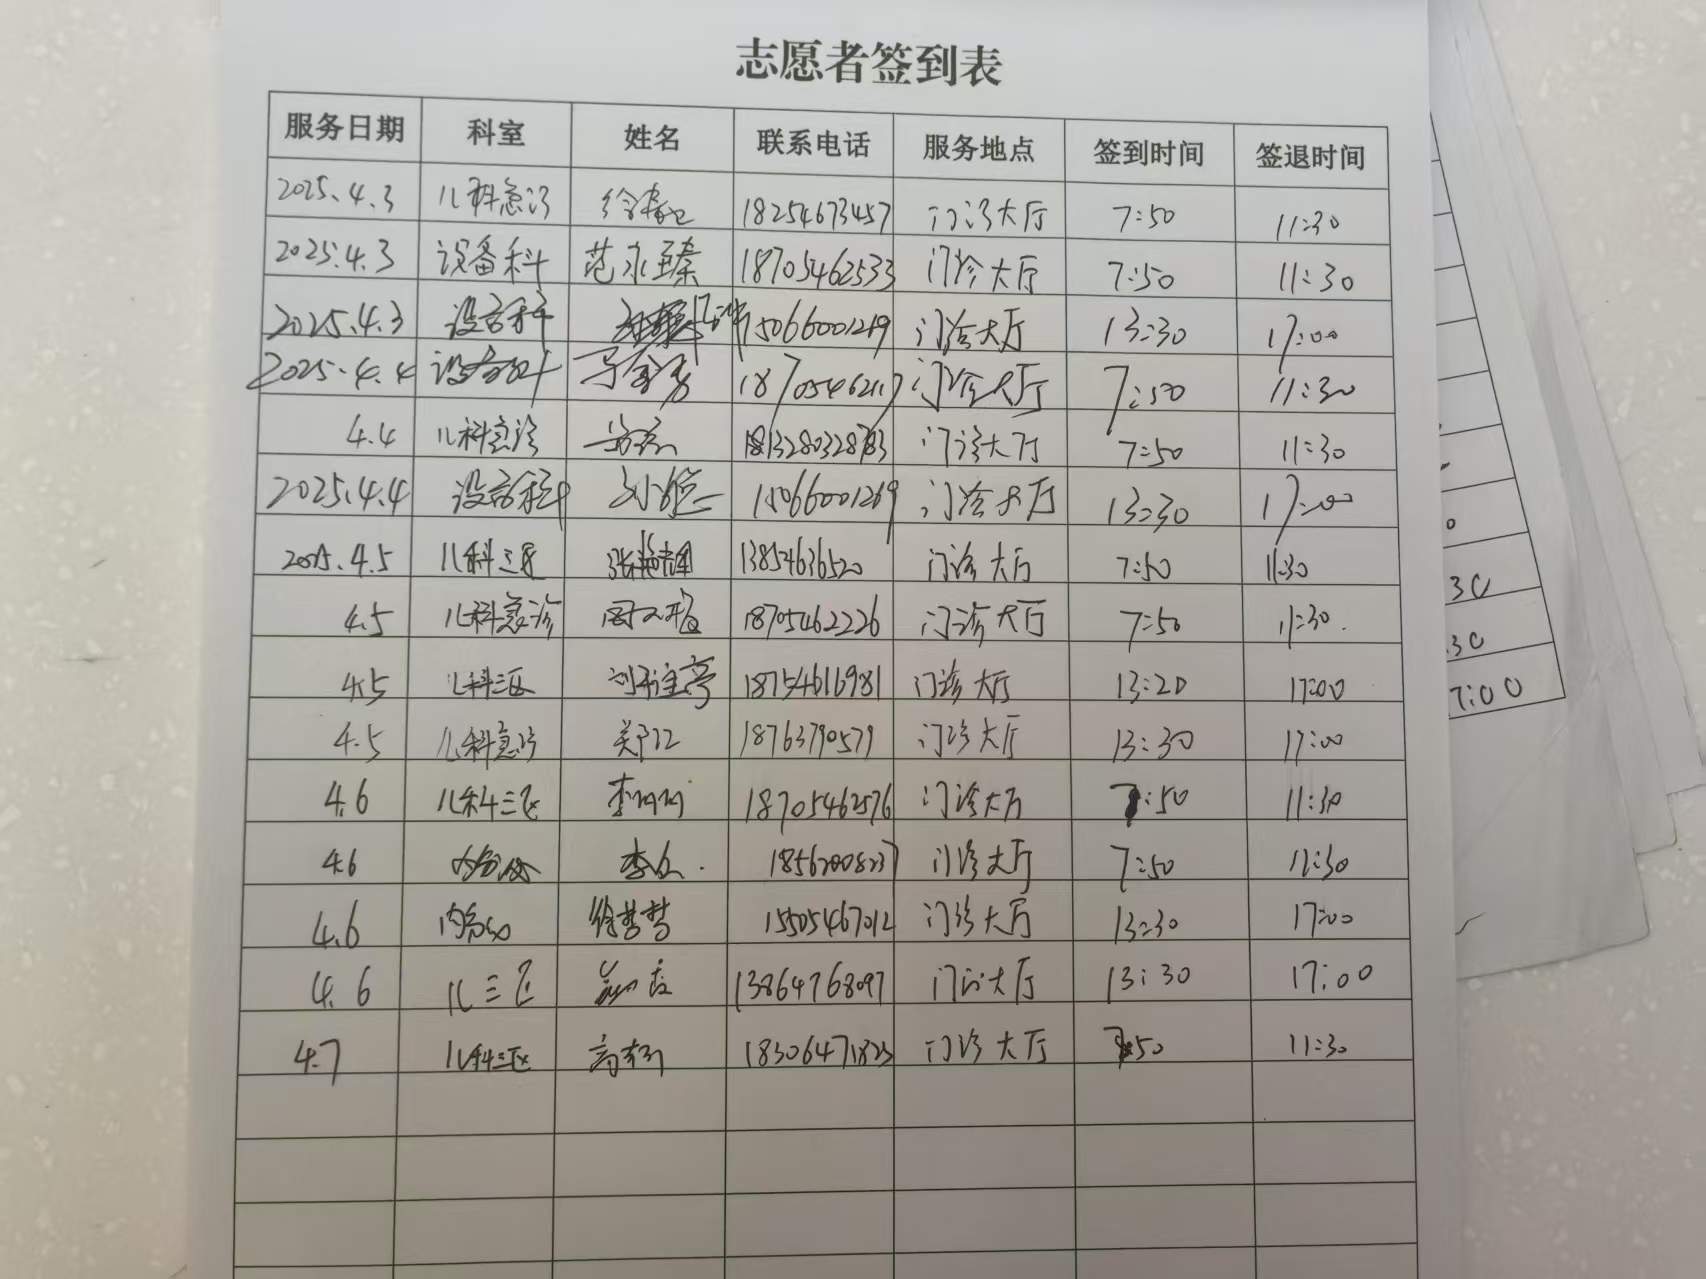 志愿者签到表
服务日期 科室 姓名 联系电话 服务地点 签到时间 签退时间
2025.4.3 儿科急诊 18254673457 门诊大厅 7:50 11:30
2025.4.3 设备科 范永臻 18705462533 门诊大厅 7:50 11:30
2025.4.3 设备科 15066001269 门诊大厅 13:30 17:00
2025.4.4 设备科 门诊大厅 7:50 11:30
4.4 儿科急诊 门诊大厅 7:50 11:30
2025.4.4 设备科 15066001269 门诊大厅 13:30 17:00
2025.4.5 儿科三区 13854636520 门诊大厅 7:50 11:30
4.5 儿科急诊 18705462226 门诊大厅 7:50 11:30.
4.5 儿科三区 18754616981 门诊大厅 13:20 17:00
4.5 儿科急诊 18763790579 门诊大厅 13:30 17:00
4.6 儿科三区 李珂珂 18705462576 门诊大厅 7:50 11:30
4.6 18562008237 门诊大厅 7:50 11:30
4.6 徐梦梦 15505467012 门诊大厅 13:30 17:00
4.6 儿三区 13864768097 门诊大厅 13:30 17:00
4.7 儿科三区 18306471823 门诊大厅 7:50 11:30
30
30
7:00